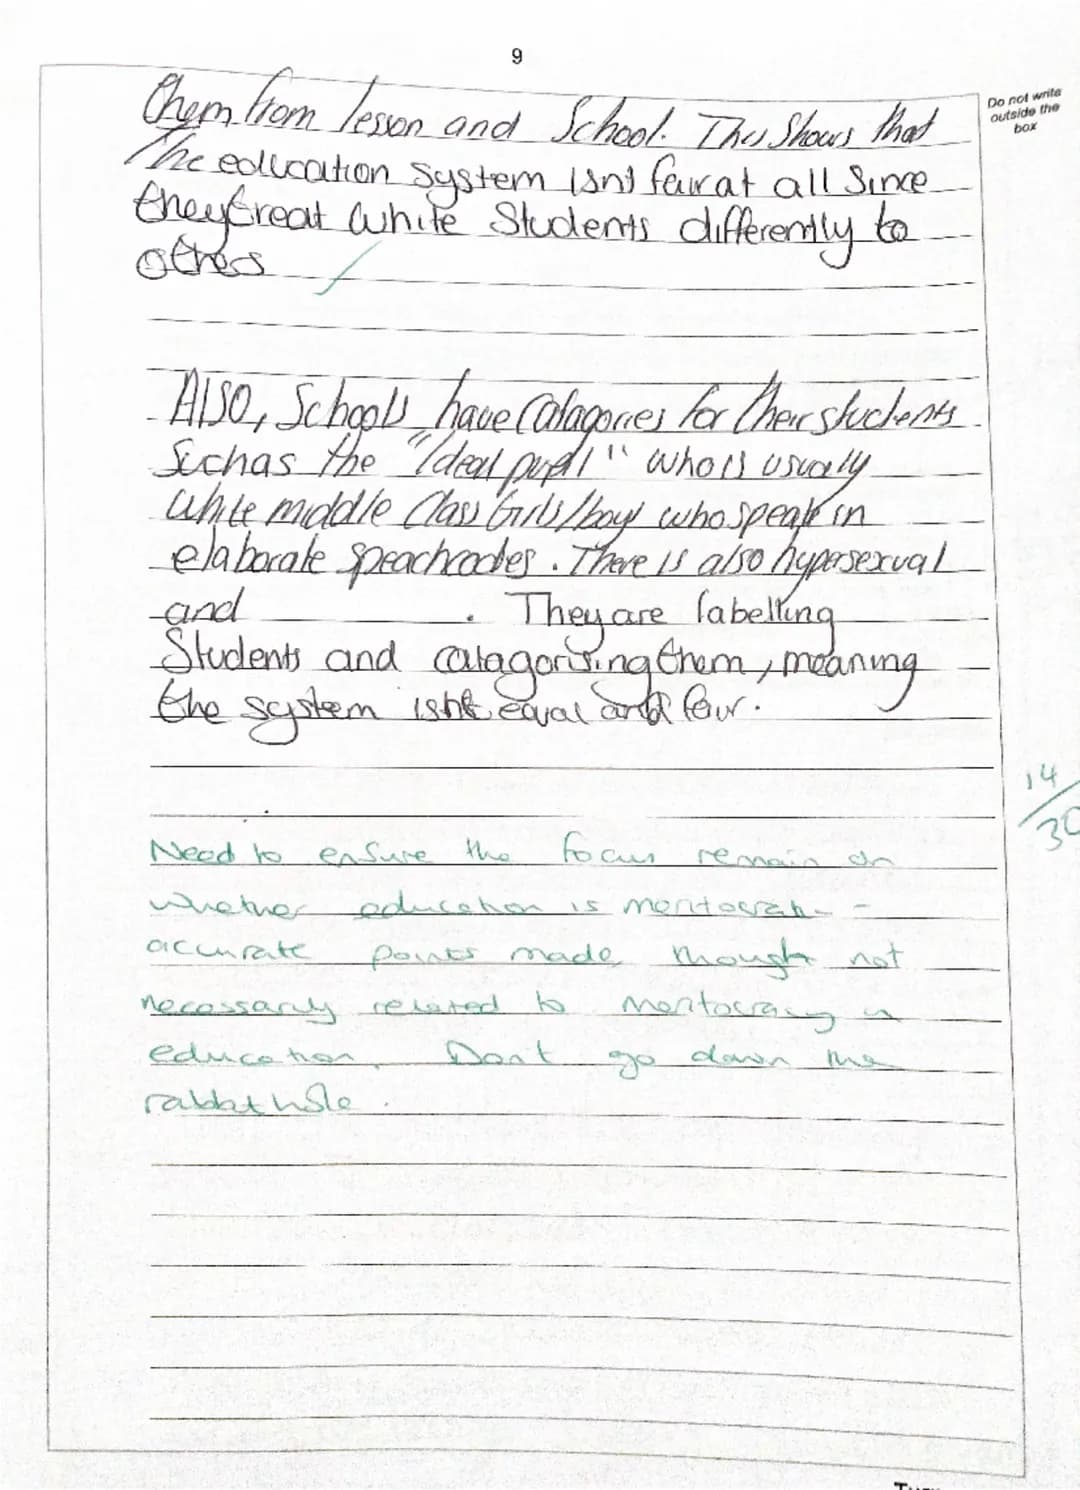 9
Do not write
outside the
box
them from lesson and School. This Shows that
The education system isnt fair at all Since
they treat white Students differently to
others
Also, Schools have Catagories for their students
Such as the "Ideal pupil" who is usually
white middle Class Girls/boys who speak in
elaborate speachcodes. There is also hypersexual
and . They are labelling
Students and catagorising them, meaning
the system isnt equal and fair.
14/30
Need to ensure the focus remain on
whether education is meritocratic -
accurate points made though not
necessarily related to meritocracy in
education. Don't go down the
rabbit hole.